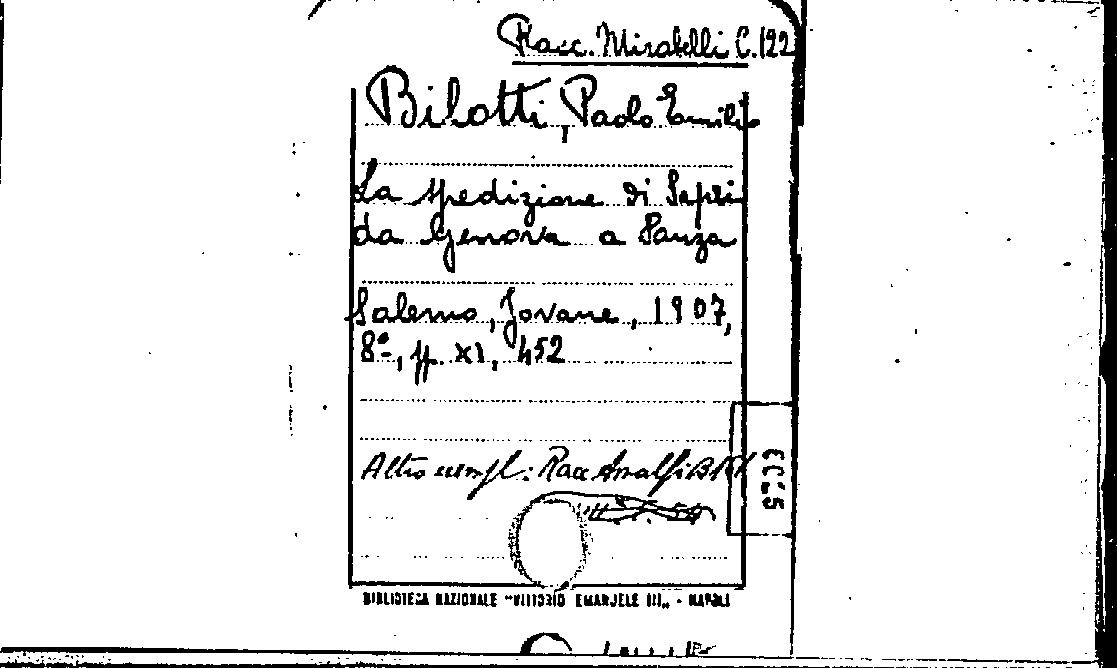 Racc. Mirabelli C.122
Bilotti, Paolo Emilio
La spedizione di Sapri
da Genova a Sanza
Salerno, Jovane, 1907,
8º, pp. XI, 452
Altro esempl: Racc Amalfi B
BIBLIOTECA NAZIONALE "VITTORIO EMANUELE III" - NAPOLI